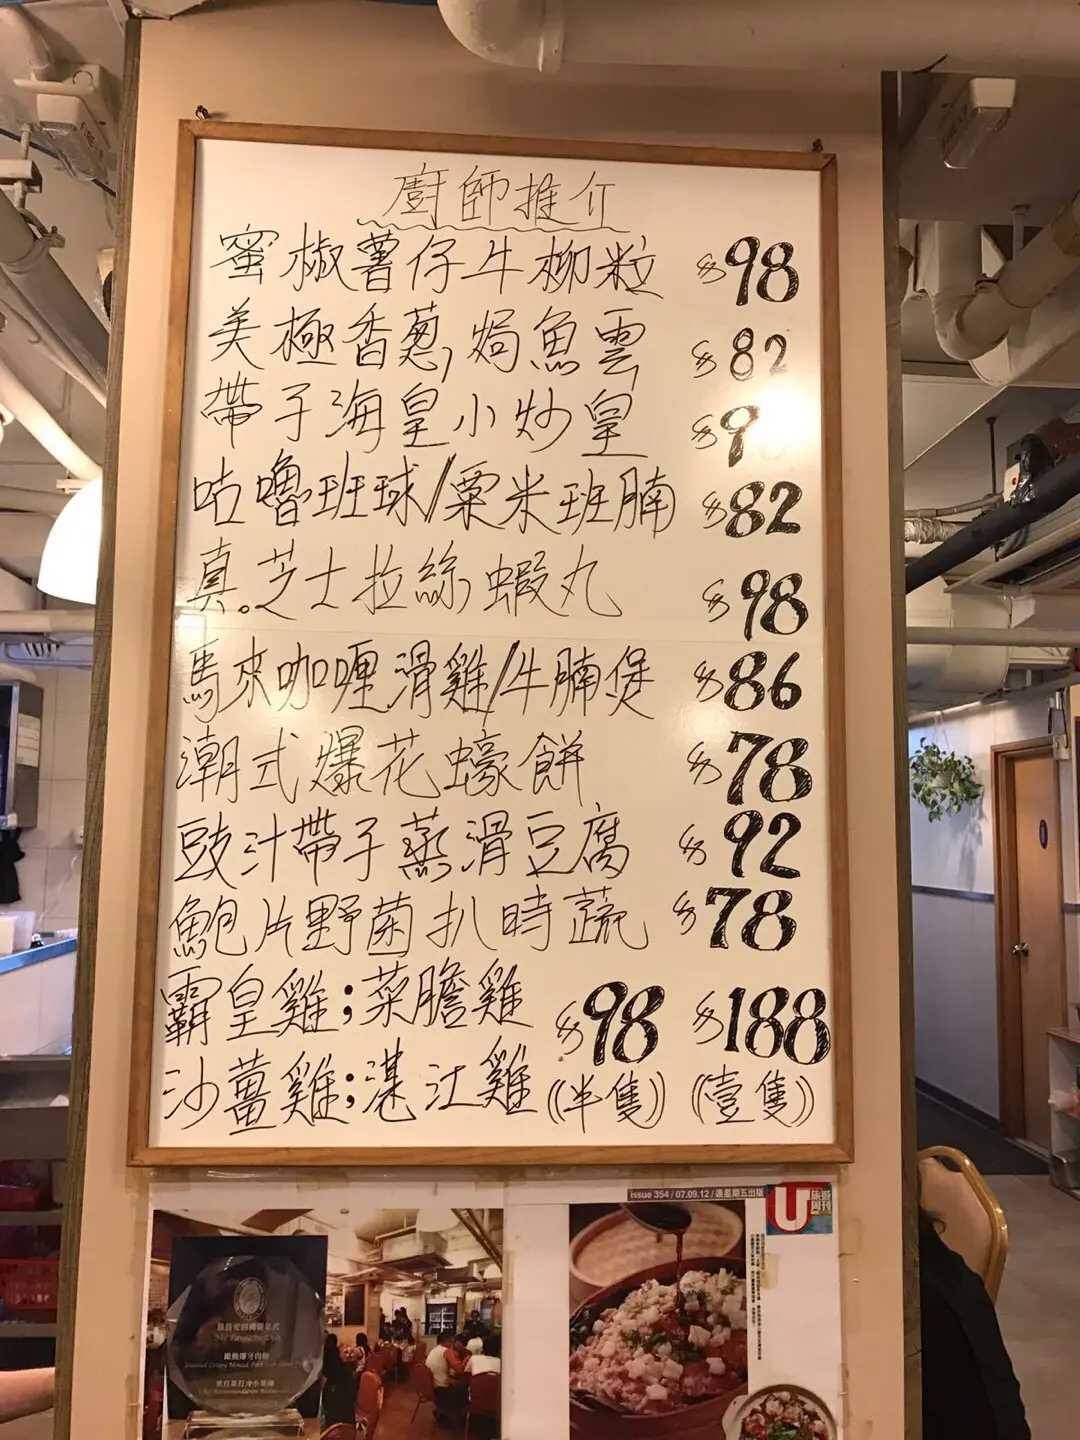 廚師推介
蜜椒薯仔牛柳粒 $98
美極香蔥焗魚雲 $82
帶子海皇小炒皇 $9
咕嚕班球/粟米班腩 $82
真芝士拉絲蝦丸 $98
馬來咖喱滑雞/牛腩煲 $86
潮式爆花蠔餅 $78
豉汁帶子蒸滑豆腐 $92
鮑片野菌扒時蔬 $78
霸皇雞;菜膽雞 $98 $188
沙薑雞;湛江雞 (半隻) (壹隻)
issue 354 / 07.09.12 / 逢星期五出版
U
旅遊
周刊